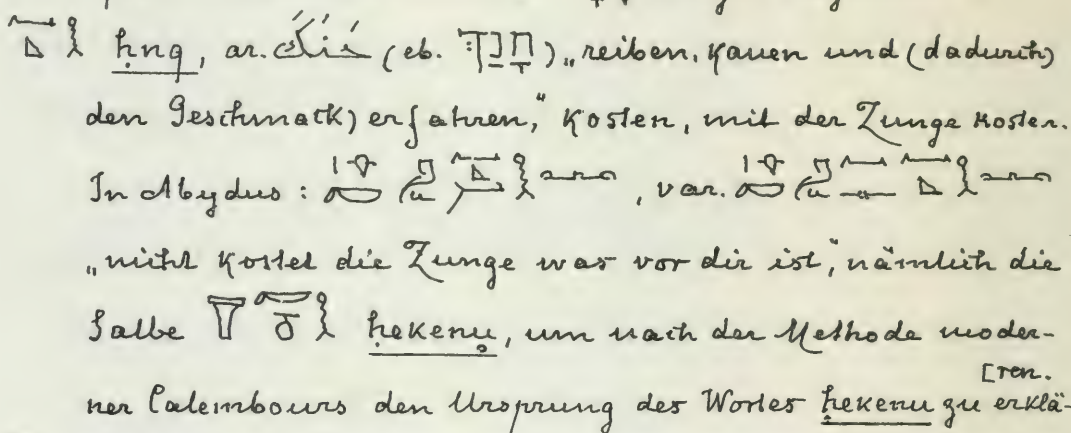 ḥnq, ar. حنك (eb. חָנַךְ) „reiben, kauen und (dadurch)
den Geschmack) erfahren,“ kosten, mit der Zunge kosten.
In Abydus : , var.
„nicht kostet die Zunge was vor dir ist“, nämlich die
Salbe ḥekenu, um nach der Methode moder-
ner Calembours den Ursprung des Wortes ḥekenu zu erklä-
[ren.